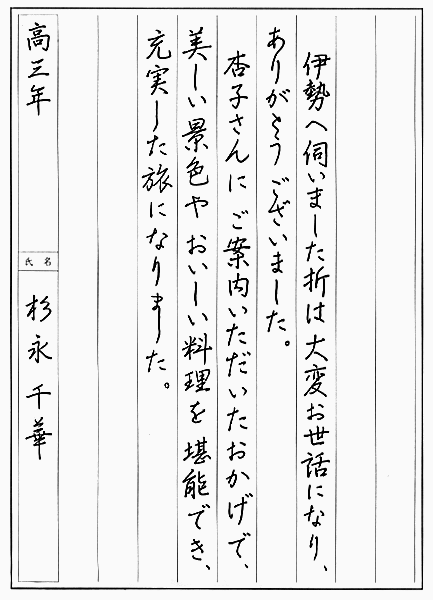 伊勢へ伺いました折は大変お世話になり、
ありがとうございました。
杏子さんにご案内いただいたおかげで、
美しい景色やおいしい料理を堪能でき、
充実した旅になりました。
高三年
氏名
杉永千華